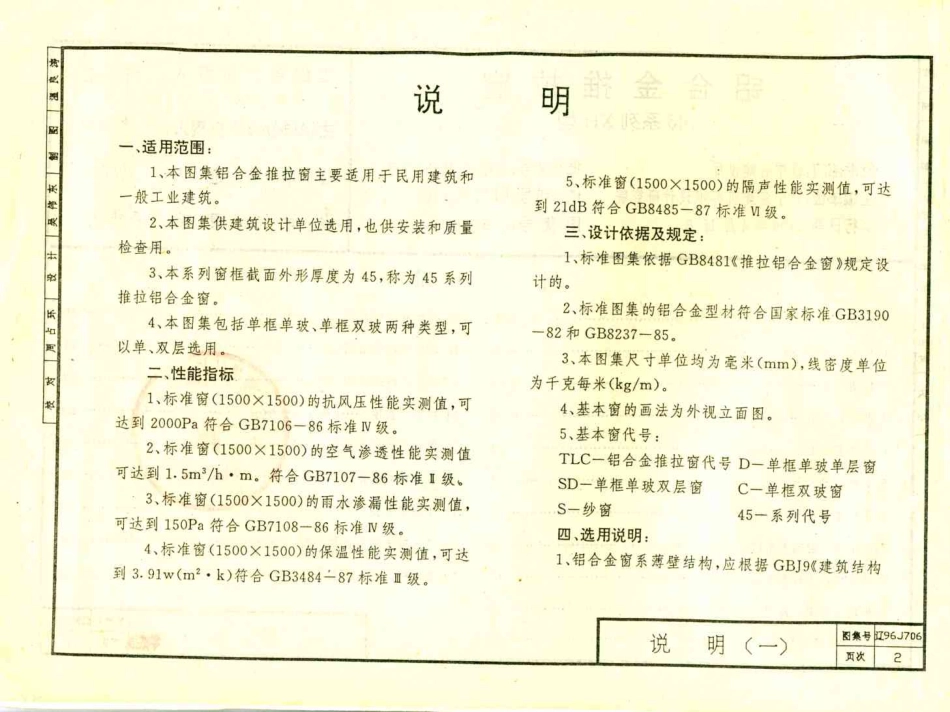 说 明
一、适用范围：
1、本图集铝合金推拉窗主要适用于民用建筑和
一般工业建筑。
2、本图集供建筑设计单位选用，也供安装和质量
检查用。
3、本系列窗框截面外形厚度为 45，称为 45 系列
推拉铝合金窗。
4、本图集包括单框单玻、单框双玻两种类型，可
以单、双层选用。
二、性能指标
1、标准窗(1500×1500)的抗风压性能实测值，可
达到 2000Pa 符合 GB7106－86 标准Ⅳ级。
2、标准窗(1500×1500)的空气渗透性能实测值
可达到 1.5m³/h·m。符合 GB7107－86 标准Ⅱ级。
3、标准窗(1500×1500)的雨水渗漏性能实测值，
可达到 150Pa 符合 GB7108－86 标准Ⅳ级。
4、标准窗(1500×1500)的保温性能实测值，可达
到 3.91w(m²·k)符合 GB3484－87 标准Ⅲ级。
5、标准窗(1500×1500)的隔声性能实测值，可达
到 21dB 符合 GB8485－87 标准Ⅵ级。
三、设计依据及规定：
1、标准图集依据 GB8481《推拉铝合金窗》规定设
计的。
2、标准图集的铝合金型材符合国家标准 GB3190
－82 和 GB8237－85。
3、本图集尺寸单位均为毫米(mm)，线密度单位
为千克每米(kg/m)。
4、基本窗的画法为外视立面图。
5、基本窗代号：
TLC－铝合金推拉窗代号 D－单框单玻单层窗
SD－单框单玻双层窗 C－单框双玻窗
S－纱窗 45－系列代号
四、选用说明：
1、铝合金窗系薄壁结构，应根据 GBJ9《建筑结构
说 明 (一)
图集号 辽96J706
页次 2
制 图
设 计
校 对